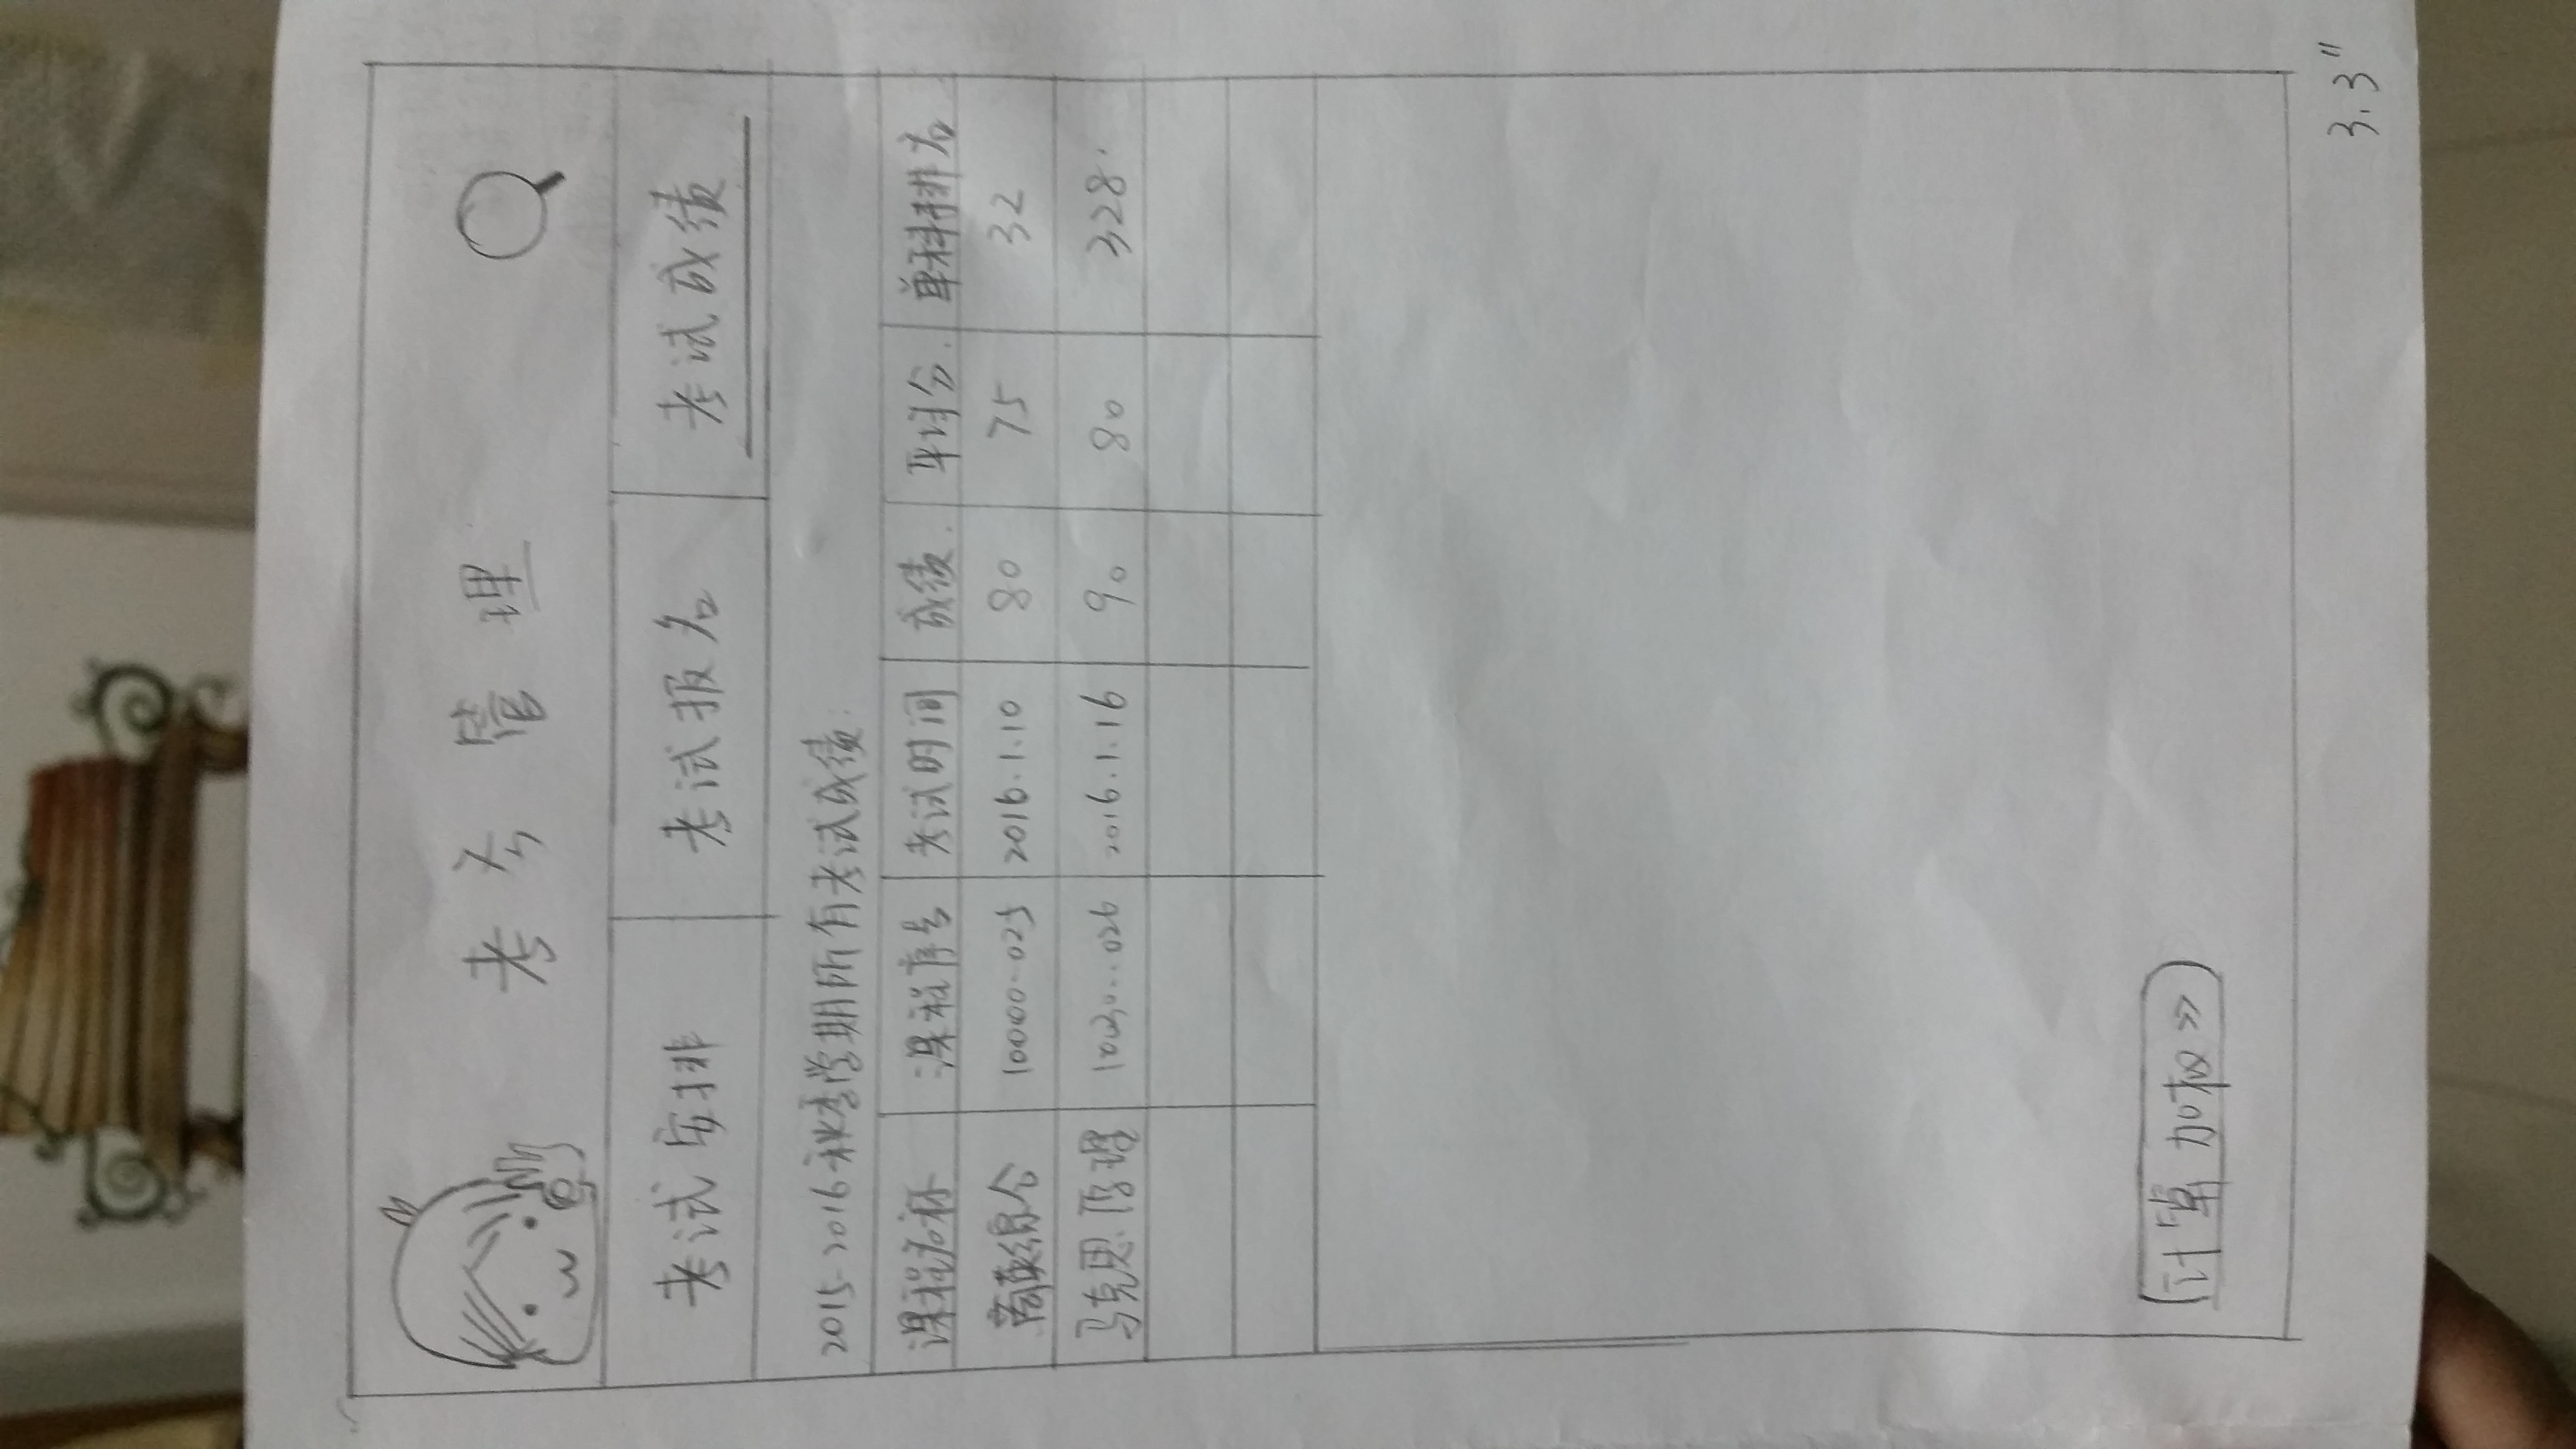 考务管理
考试安排 考试报名 考试成绩
2015-2016秋季学期所有考试成绩
课程名称 课程序号 考试时间 成绩 平均分 单科排名
商英综合 10000..025 2016.1.10 80 75 32
马克思原理 10030...026 2016.1.16 90 80 328
计算加权>>
3.3"